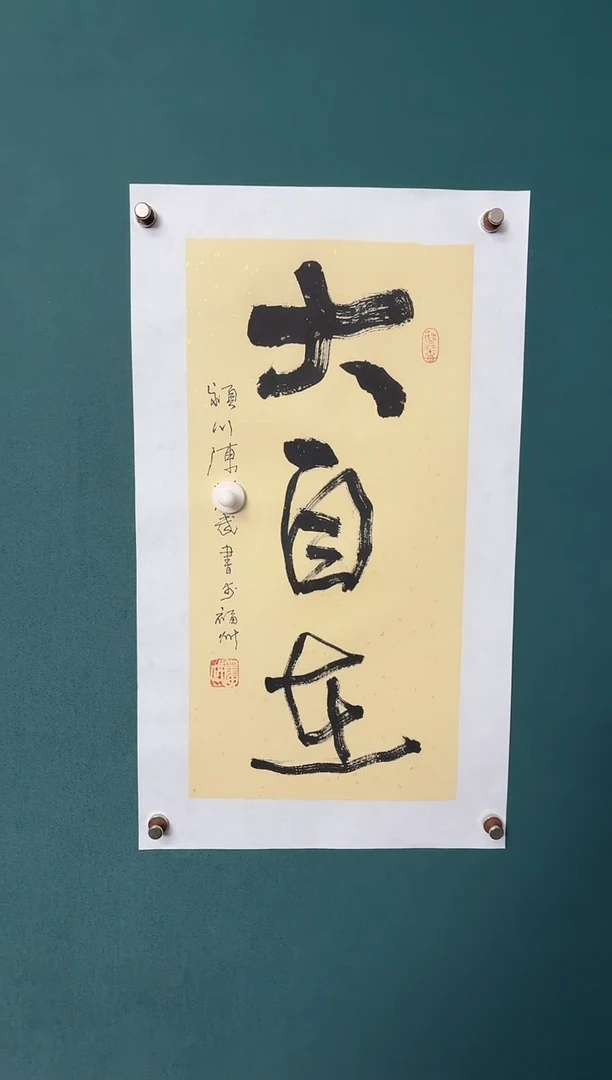 大自在
潁川陳 武書於福州